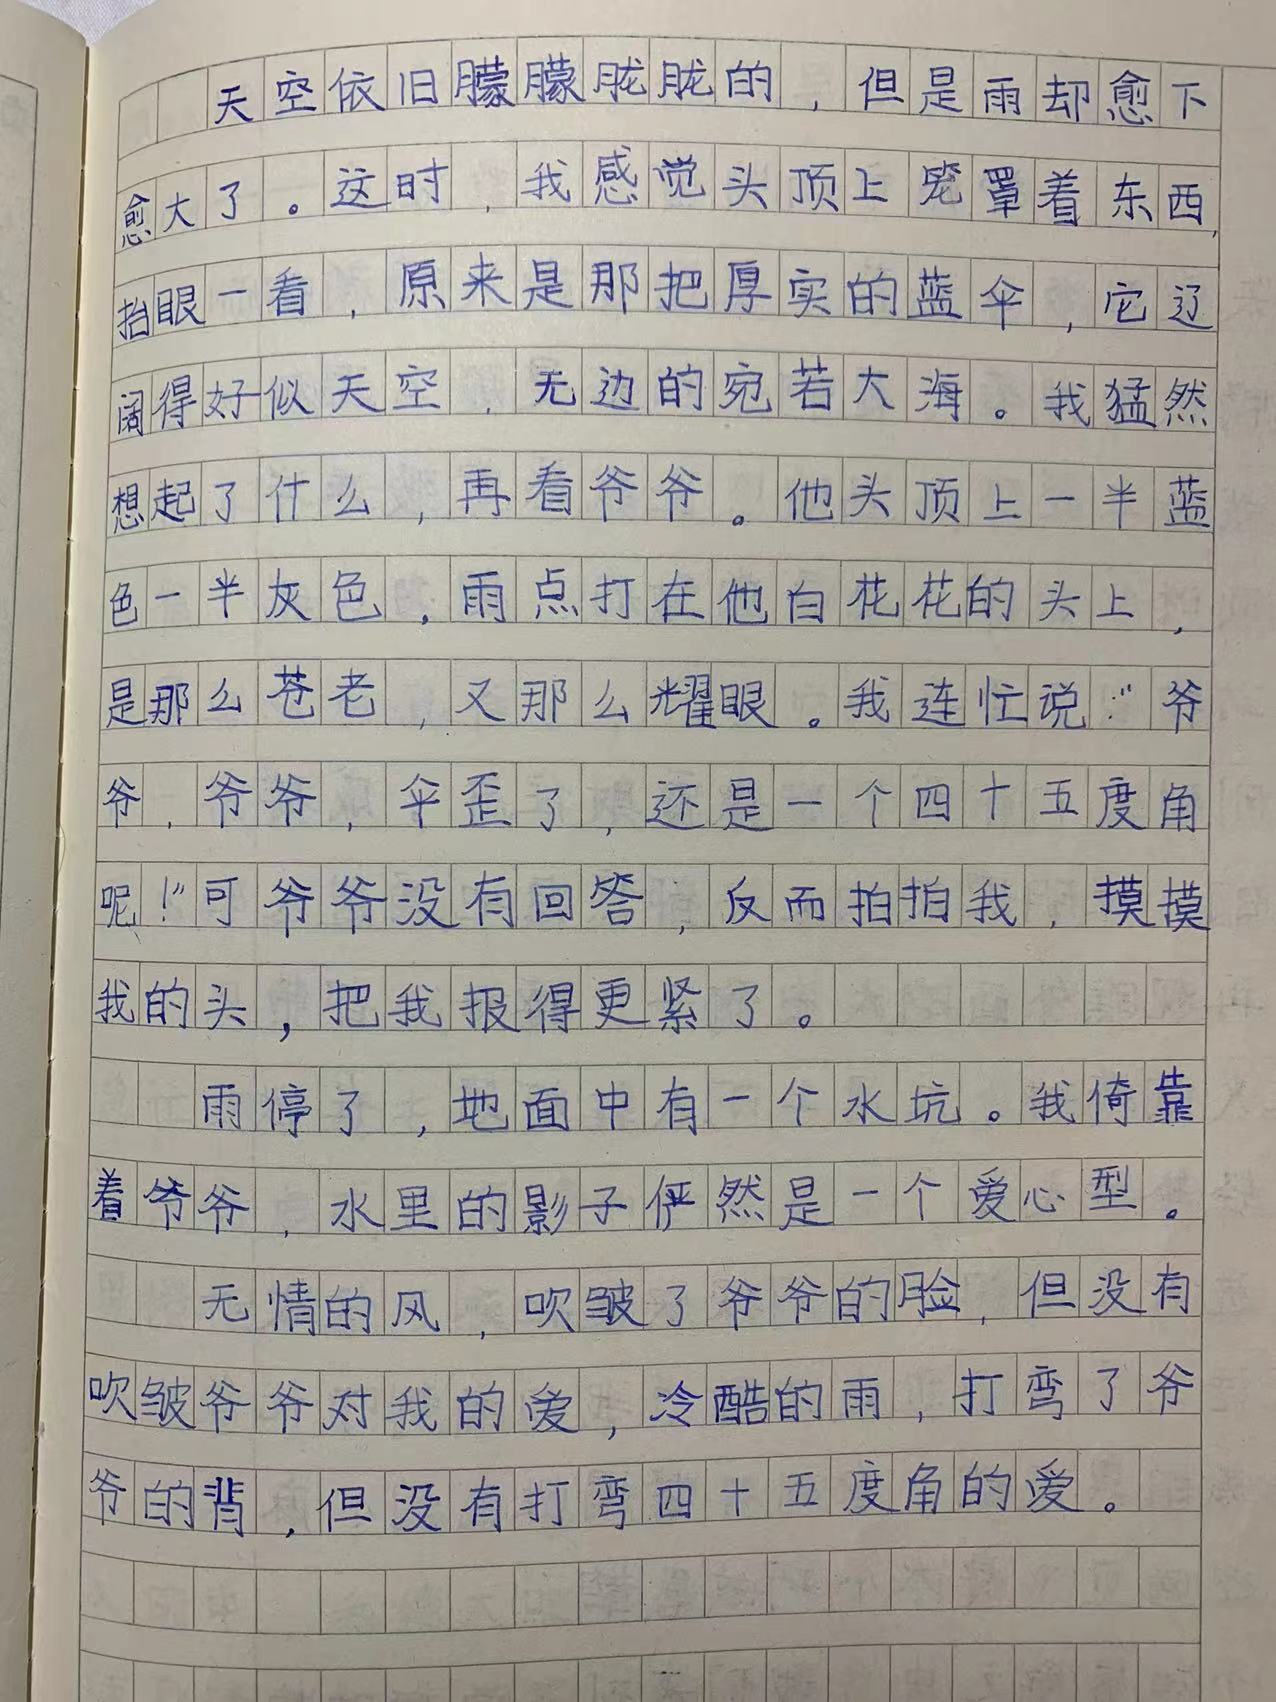 天空依旧朦朦胧胧的，但是雨却愈下
愈大了。这时，我感觉头顶上笼罩着东西，
抬眼一看，原来是那把厚实的蓝伞，它辽
阔得好似天空，无边的宛若大海。我猛然
想起了什么，再看爷爷。他头顶上一半蓝
色一半灰色，雨点打在他白花花的头上，
是那么苍老，又那么耀眼。我连忙说：“爷
爷，爷爷，伞歪了，还是一个四十五度角
呢！”可爷爷没有回答，反而拍拍我，摸摸
我的头，把我报得更紧了。
雨停了，地面中有一个水坑。我倚靠
着爷爷，水里的影子俨然是一个爱心型。
无情的风，吹皱了爷爷的脸，但没有
吹皱爷爷对我的爱，冷酷的雨，打弯了爷
爷的背，但没有打弯四十五度角的爱。